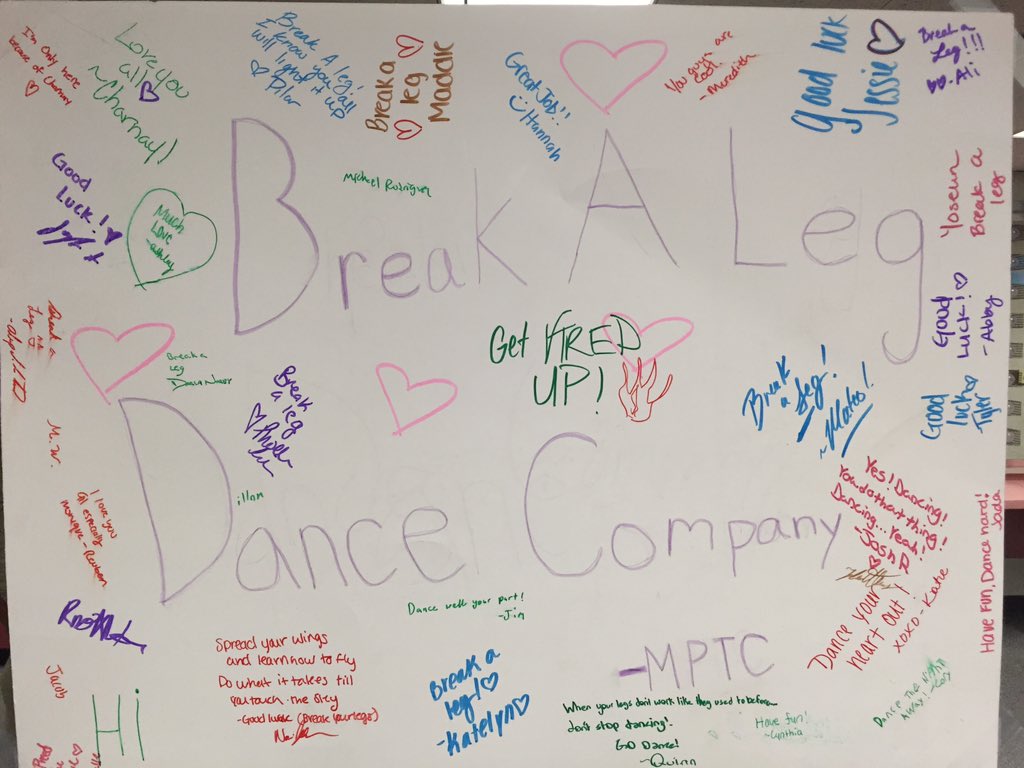 I'm only here
because of Charnay
Love you
all
~Charnay!
Break A leg!
I know you all
will light it up
Pilar
Break a
leg
Maddie
Great Job!!
Hannah
You guys are
cool.
-Meredith
Good luck
Jessie
Break a
Leg!!!
-Ali
Good
Luck!
Much
Love
-ashley
Michael Rodriguez
Break A Leg
Yoseun
Break a
leg
Good
Luck!
-Abby
Break a
Leg
Break a
leg
Get FIRED
UP!
Break
a leg
Break
a Leg!
~Mateo!
Good
luck
Tyler
M.W.
I love you
all especially
monique - Reuben
illom
Dance Company
Yes! Dancing!
You do that thing!
Dancing... Yeah!
Josh R
Have Fun, Dance hard!
Jada
Dance well your part!
-Jim
Dance your
heart out!
xoxo-Katie
Spread your wings
and learn how to fly
Do what it takes till
you touch the sky
-Good luck (Break your legs)
Break a
leg!
-Katelyn
-MPTC
Jacob
Hi
When your legs don't work like they used to before...
don't stop dancing!
GO Dance!
~Quinn
Have fun!
-Cynthia
Dance the night
Away!